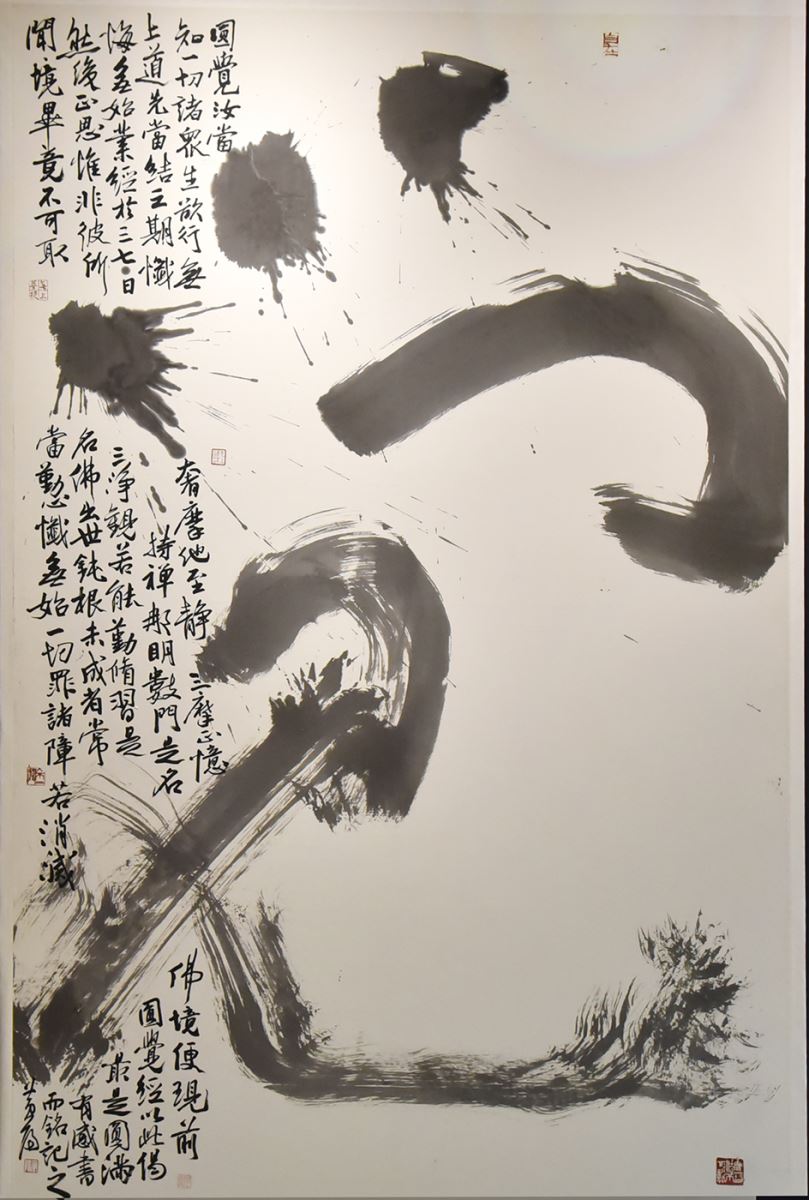 圓覺汝當
知一切諸眾生欲行無
上道先當結三期懺
悔無始業經於三七日
然後正思惟非彼所
聞境畢竟不可取
奢摩他至靜
三摩正憶
持禪那明數門是名
三淨觀若能勤脩習是
名佛出世鈍根未成者常
當勤心懺無始一切罪諸障
若消滅
佛境便現前
圓覺經以此偈
最是圓滿
有感書
而銘記之